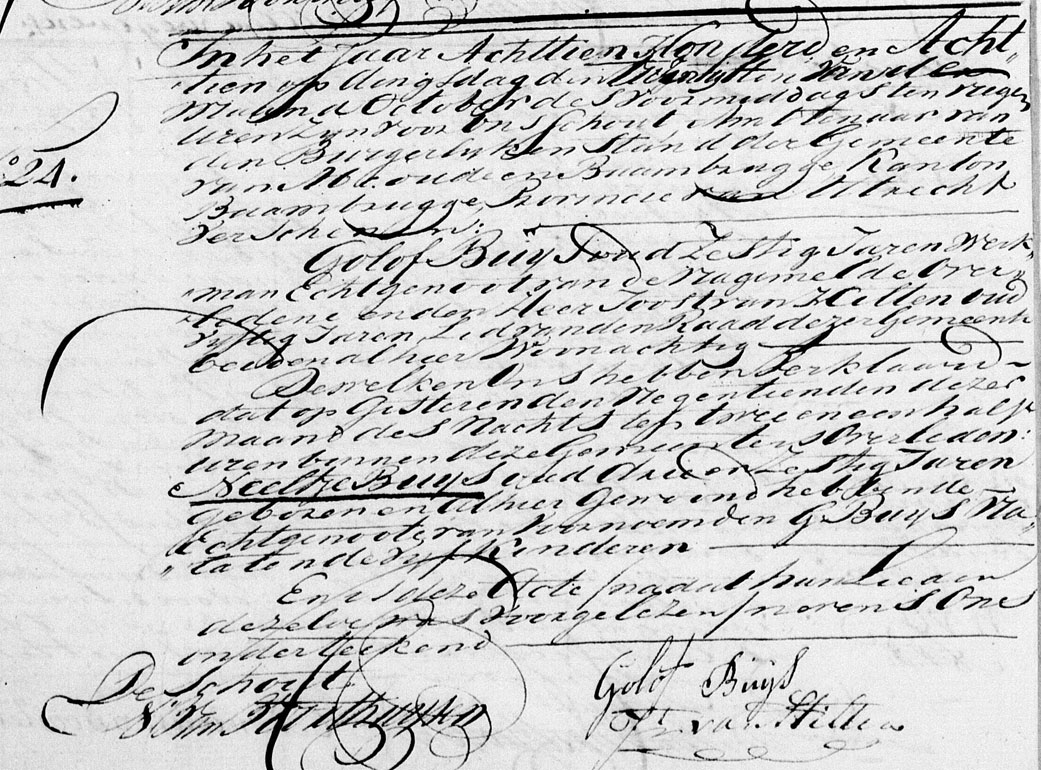 In het Jaar Achttien Honderd en Acht,,
,,tien op dingsdag den twintigsten van de
Maand October des voormiddags ten negen
uren zijn voor ons Schout Ambtenaar van
den Burgerlijken Stand der Gemeente
van Abcoude en Baambrugge, Kanton
24.
Baambrugge, Provincie van Utrecht
Verschenen:
Golof Buijs oud Zestig Jaren Werk,,
,,man Echtgenoot van de Nagemelde Over,,
,,ledene en den Heer Joost van Hilten oud
Jaren Lid van den Raad dezer Gemeente
beiden alhier Woonachtig
Dewelken Ons hebben Verklaard
dat op Gisteren den Negentienden dezer
Maand des Nachts ten twee en een half
uren binnen deze Gemeente is Overleden:
Neeltje Buijs oud drie en Zestig Jaren
geboren en alhier Gewoond hebbende
Echtgenoote van Voornoemden G. Buijs Na,,
,,latende vijf Kinderen
En is deze Acte, na dat hun Lieden
dezelve was Voorgelezen, nevens Ons
onderteekend
De Schout
Golof Buijs
Jt. van Hilten